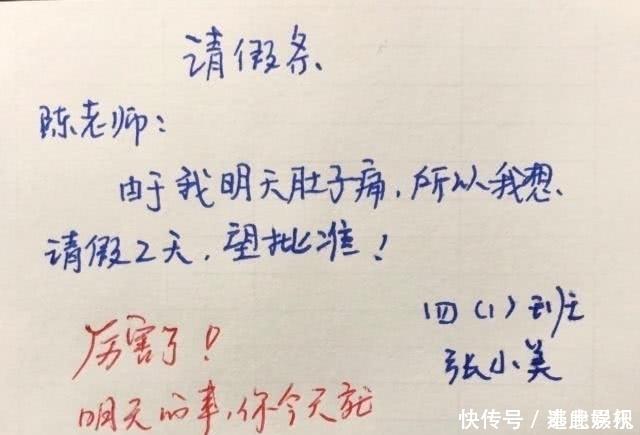 请假条
陈老师：
由于我明天肚子痛，所以我想
请假2天，望批准！
四（1）班
张小美
厉害了！
明天的事，你今天就
快传号